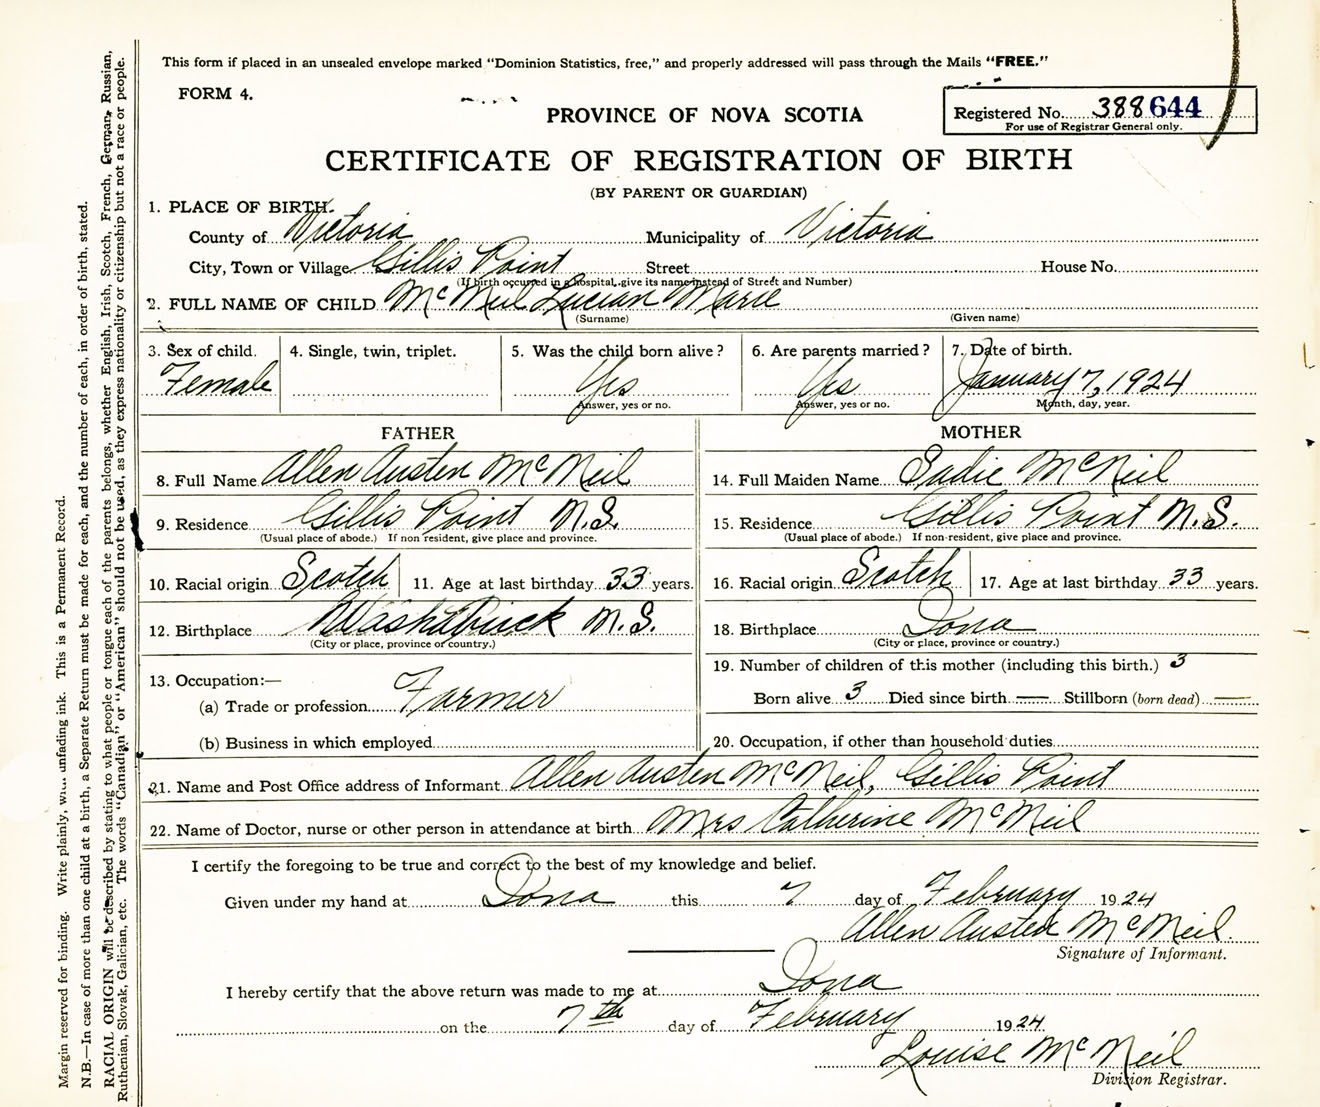 This form if placed in an unsealed envelope marked "Dominion Statistics, free," and properly addressed will pass through the Mails "FREE."
FORM 4.
PROVINCE OF NOVA SCOTIA
Registered No. 388644
For use of Registrar General only.
CERTIFICATE OF REGISTRATION OF BIRTH
(BY PARENT OR GUARDIAN)
1. PLACE OF BIRTH.
County of Victoria Municipality of Victoria
City, Town or Village Gillis Point Street House No.
(If birth occurred in a hospital, give its name instead of Street and Number)
2. FULL NAME OF CHILD McNeil Lucian Marie
(Surname) (Given name)
3. Sex of child. 4. Single, twin, triplet. 5. Was the child born alive? 6. Are parents married? 7. Date of birth.
Female Yes Yes January 7, 1924
Answer, yes or no. Answer, yes or no. Month, day, year.
FATHER MOTHER
8. Full Name Allen Austen McNeil 14. Full Maiden Name Sadie McNeil
9. Residence Gillis Point N.S. 15. Residence Gillis Point N.S.
(Usual place of abode.) If non resident, give place and province. (Usual place of abode.) If non-resident, give place and province.
10. Racial origin Scotch 11. Age at last birthday 33 years. 16. Racial origin Scotch 17. Age at last birthday 33 years.
12. Birthplace Washabuck N.S. 18. Birthplace Iona
(City or place, province or country.) (City or place, province or country.)
19. Number of children of this mother (including this birth.) 3
13. Occupation:—
(a) Trade or profession Farmer Born alive 3 Died since birth — Stillborn (born dead) —
(b) Business in which employed 20. Occupation, if other than household duties
21. Name and Post Office address of Informant Allen Austen McNeil, Gillis Point
22. Name of Doctor, nurse or other person in attendance at birth Mrs Catherine McNeil
I certify the foregoing to be true and correct to the best of my knowledge and belief.
Given under my hand at Iona this 7 day of February 1924
Allen Austen McNeil
Signature of Informant.
I hereby certify that the above return was made to me at Iona
on the 7th day of February 1924
Louise McNeil
Division Registrar.
Margin reserved for binding. Write plainly, with unfading ink. This is a Permanent Record.
N.B.—In case of more than one child at a birth, a Separate Return must be made for each, and the number of each, in order of birth, stated.
RACIAL ORIGIN will be described by stating to what people or tongue each of the parents belongs, whether English, Irish, Scotch, French, German, Russian,
Ruthenian, Slovak, Galician, etc. The words "Canadian" or "American" should not be used, as they express nationality or citizenship but not a race or people.